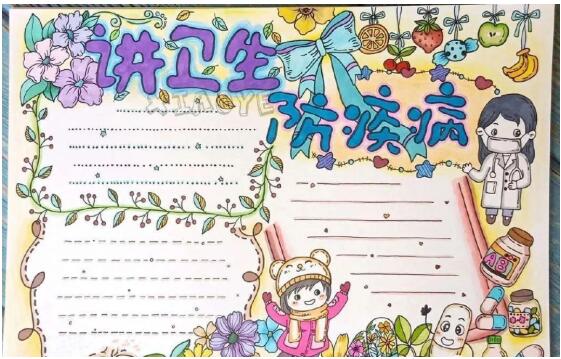 讲卫生
防疾病
AB